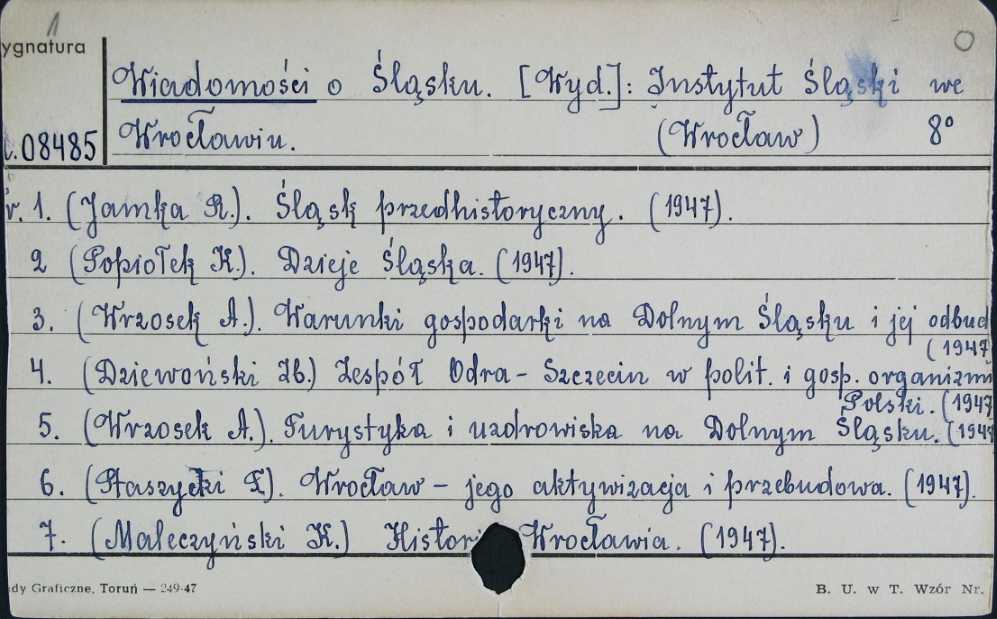 1
ygnatura
Wiadomości o Śląsku. [Wyd.]: Instytut Śląski we
08485 Wrocławiu. (Wrocław) 8°
r. 1. (Jamka R.). Śląsk przedhistoryczny. (1947).
2 (Popiołek K.). Dzieje Śląska. (1947).
3. (Wrzosek A.). Warunki gospodarki na Dolnym Śląsku i jej odbud
(1947
4. (Dziewoński K.) Zespół Odra - Szczecin w polit. i gosp. organizmi
Polski. (1947
5. (Wrzosek A.). Turystyka i uzdrowiska na Dolnym Śląsku. (1947
6. (Ptaszycki T.). Wrocław - jego aktywizacja i przebudowa. (1947).
7. (Maleczyński K.) Histori Wrocławia. (1947).
dy Graficzne, Toruń — 249-47 B. U. w T. Wzór Nr.